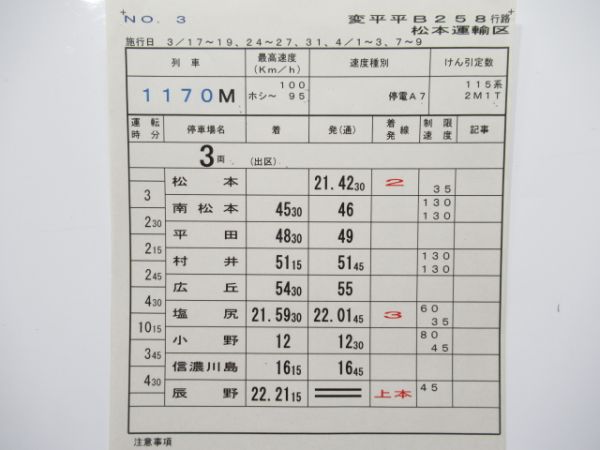 NO. 3 変平平B258行路
松本運輸区
施行日 3/17～19、24～27、31、4/1～3、7～9
列車 最高速度(Km/h) 速度種別 けん引定数
1170M 100 ホシ～ 95 停電A7 115系 2M1T
運転時分 停車場名 着 発(通) 着発線 制限速度 記事
3両 (出区)
松本 21.4230 2 35
3
南松本 4530 46 130 130
230
平田 4830 49
215
村井 5115 5145 130 130
245
広丘 5430 55
430
塩尻 21.5930 22.0145 3 60 35
1015
小野 12 1230 80 45
345
信濃川島 1615 1645
430
辰野 22.2115 上本 45
注意事項